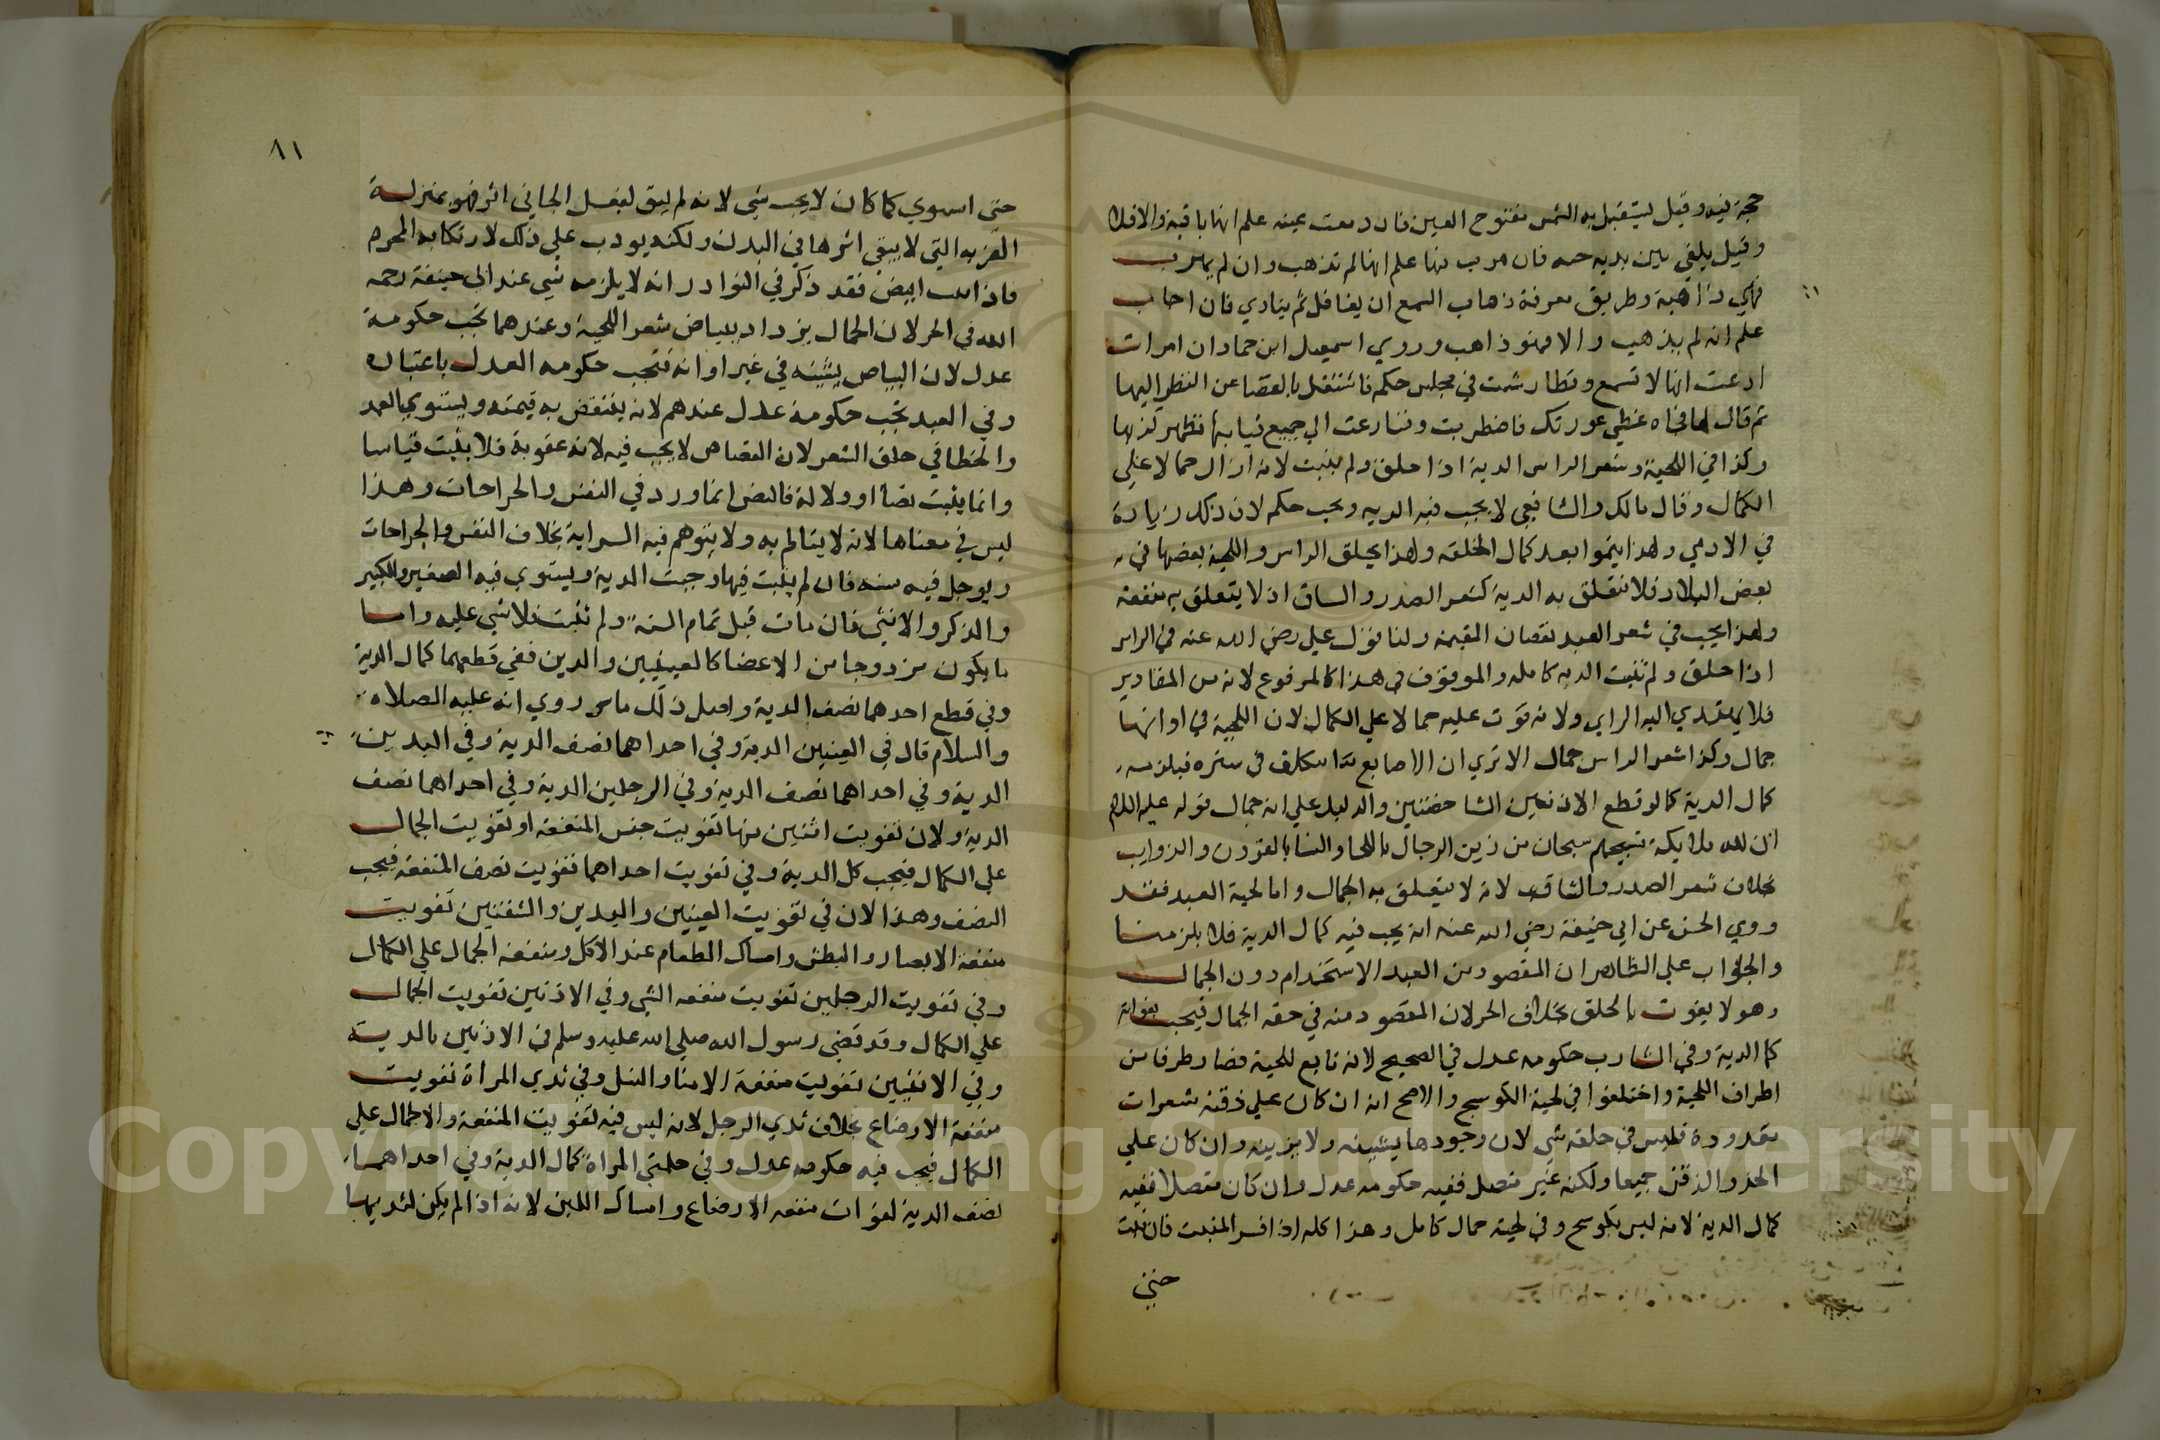 حجة فيه وقيل يستقبل به الشمس مفتوح العين فان دمعت عينه علم انها باقية والا فلا
وقيل يلقي بين يديه حيه فان هرب منها علم انها لم تذهب وان لم يهرب
فهي ذاهبة وطريق معرفة ذهاب السمع ان يغافل ثم ينادي فان اجاب
علم انه لم يذهب والا فهو ذاهب وروي اسمعيل ابن حماد ان امرات
ادعت انها لا تسمع وتطارشت في مجلس حكمه فاشتغل بالقضا عن النظر اليها
ثم قال لها فجاه غطي عورتك فاضطربت وتسارعت الي جميع ثيابها فظهر كذبها
وكذا في اللحية وشعر الراس الدية اذا حلق ولم ينبت لانه ازال جمالا علي
الكمال وقال مالك والشافعي لا يجب فيه الديه ويجب حكم لان ذلك زيادة
في الادمي ولهذا ينموا بعد كمال الخلقه ولهذا يحلق الراس واللحية بعضها في
بعض البلاد فلا تتعلق به الدية كشعر الصدر والساق اذ لا يتعلق به منفعة
ولهذا يجب في شعر العبد نقصان القيمه ولنا قول علي رضي الله عنه في الراس
اذا حلق ولم تنبت الديه كامله والموقوف في هذا كالمرفوع لانه من المقادير
فلا يهتدي اليه الراي ولانه فوت عليه جمالا علي الكمال لان اللحية في اوانها
جمال وكذا شعر الراس جمال الا تري ان الاصلع يتكلف في ستره فيلزمه
كمال الدية كما لو قطع الاذنين الشاخصتين والدليل علي انه جمال قوله عليه السلام
ان لله ملايكة تسبيحهم سبحان من زين الرجال باللحا والنسا بالقرون والذوايب
بخلاف شعر الصدر والساق لانه لا يتعلق به الجمال واما لحية العبد فقد
وروي الحسن عن ابي حنيفة رضي الله عنه انه يجب فيه كمال الدية فلا يلزمنا
والجواب علي الظاهر ان المقصود من العبد الاستخدام دون الجمال
وهو لا يفوت بالحلق بخلاف الحر لان المقصود منه في حقه الجمال فيجب بفواته
كما الدية وفي الشارب حكومه عدل في الصحيح لانه تابع للحية فصار طرفا من
اطراف اللحية واختلفوا في لحية الكوسج والاصح انه ان كان علي ذقنه شعرات
معدودة فليس في حلقه شي لان وجودها يشينه ولا يزينه وان كان علي
الخد والذقن جميعا ولكنه غير متصل ففيه حكومه عدل وان كان متصلا ففيه
كمال الدية لانه ليس بكوسج وفي لحيته جمال كامل وهذا كله اذا افسد المنبت فان نبت
حتي
٨١
حتي استوي كما كان لا يجب شي لانه لم يبق لفعل الجاني اثر فهو بمنزلة
الضربه التي لا يبقي اثرها في البدن ولكنه يودب علي ذلك لارتكابه المحرم
فاذا نبت ابيض فقد ذكر في النوادر انه لا يلزمه شي عند ابي حنيفة رحمه
الله في الحر لان الجمال يزداد ببياض شعر اللحية وعندهما تجب حكومة
عدل لان البياض يشينه في غير اوانه فتجب حكومه العدل باعتباره
وفي العبد تجب حكومة عدل عندهم لانه ينتقض به قيمته ويستوي العمد
والخطا في حلق الشعر لان القصاص لا يجب فيه لانه عقوبة فلا يثبت قياسا
وانما يثبت نصا او دلالة فالنص انما ورد في النفس والجراحات وهذا
ليس في معناها لانه لا يتالم به ولا يتوهم فيه السراية بخلاف النفس والجراحات
ويوجل فيه سنه فان لم ينبت فيها وجبت الدية ويستوي فيه الصغير والكبير
والذكر والانثي فان مات قبل تمام السنة ولم تنبت فلا شي عليه واما
ما يكون مزدوجا من الاعضا كالعينين واليدين ففي قطعهما كمال الدية
وفي قطع احدهما نصف الدية واصل ذلك ما روي انه عليه الصلاه
والسلام قال في العينين الدية وفي احداهما نصف الدية وفي اليدين
الدية وفي احداهما نصف الدية وفي الرجلين الدية وفي احداهما نصف
الدية ولان تفويت اثنين منها تفويت جنس المنفعة او تفويت الجمال
علي الكمال فيجب كل الدية وفي تفويت احداهما تفويت نصف المنفعة فيجب
النصف وهذا لان في تفويت العينين واليدين والشفتين تفويت
منفعة الابصار والبطش وامساك الطعام عند الاكل ومنفعة الجمال علي الكمال
وفي تفويت الرجلين تفويت منفعه المشي وفي الاذنين تفويت الجمال
علي الكمال وقد قضي رسول الله صلي الله عليه وسلم في الاذنين بالدية
وفي الانثيين تفويت منفعة الامنا والنسل وفي ثدي المراة تفويت
منفعة الارضاع بخلاف ثدي الرجل لانه ليس فيه تفويت المنفعة ولا الجمال علي
الكمال فيجب فيه حكومه عدل وفي حلمتي المراة كمال الدية وفي احداهما
نصف الدية لفوات منفعه الارضاع وامساك اللبن لانه اذا لم يكن لثديها
Copyright © King Saud University